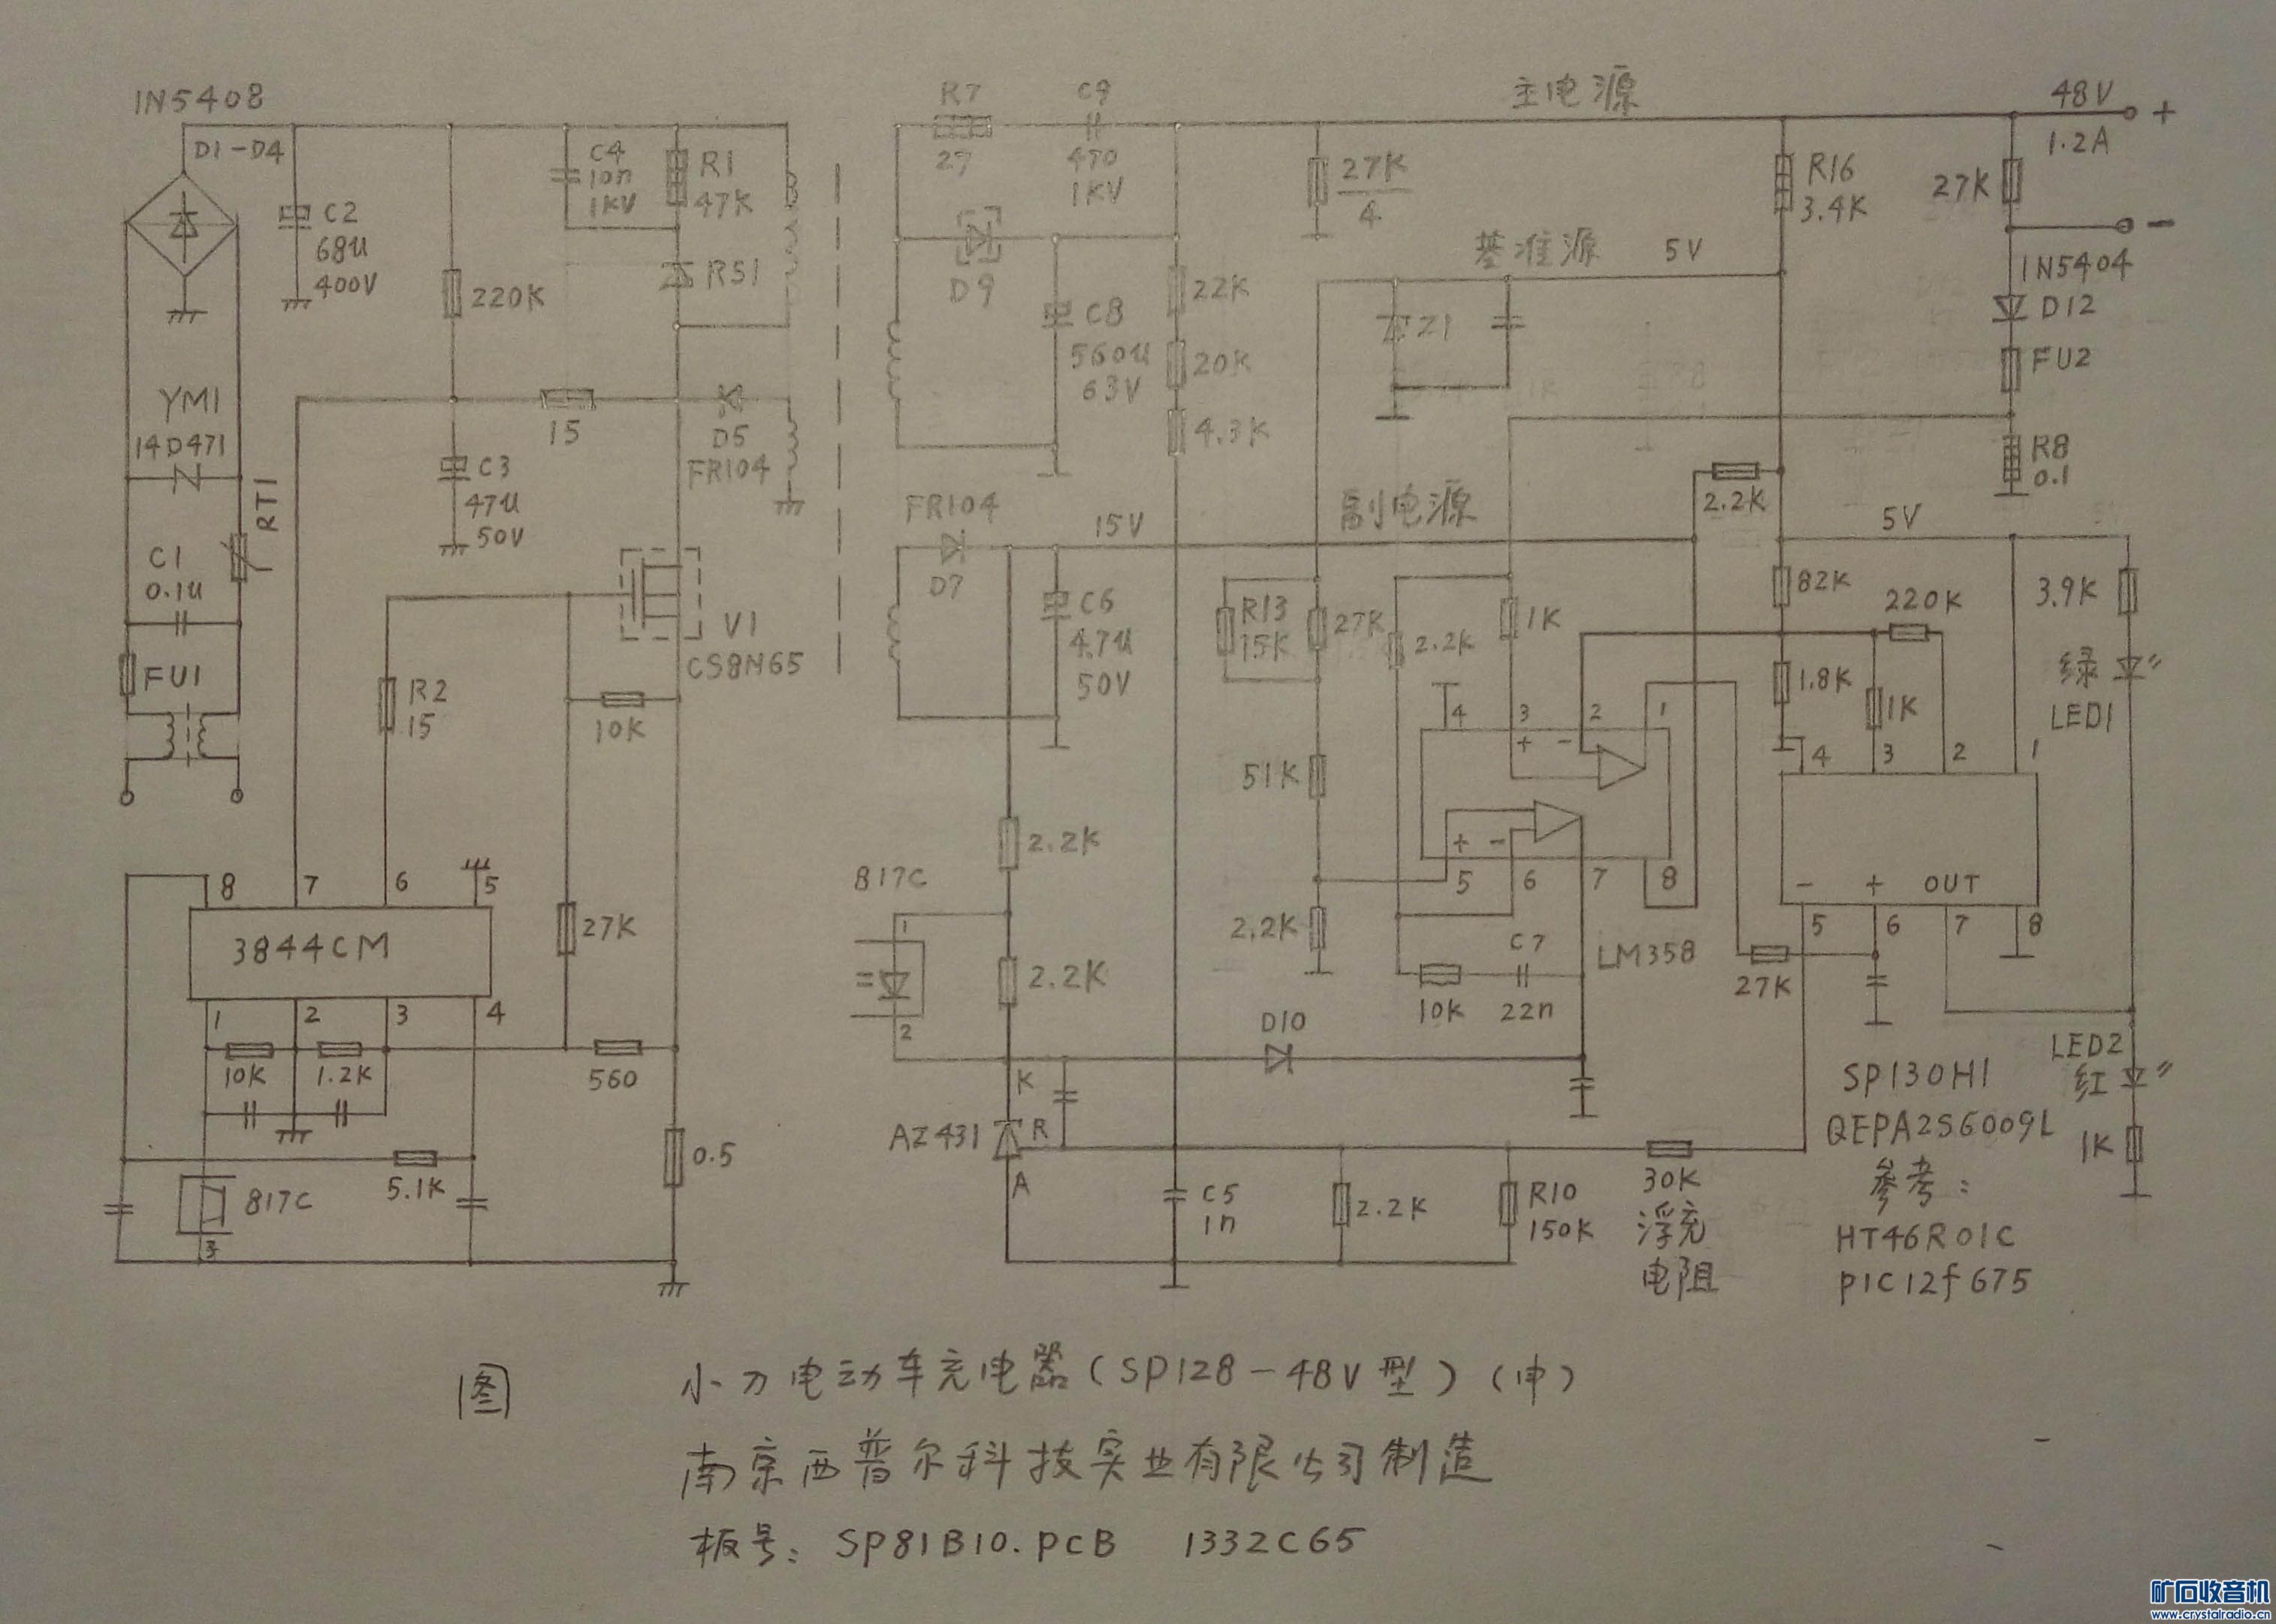 1N5408
D1-D4
C2
68u
400V
220K
C4
10n
1KV
R1
47K
RS1
YM1
14D471
RT1
C1
0.1u
FU1
15
C3
47u
50V
D5
FR104
V1
CS8N65
R2
15
10K
27K
8
7
6
5
3844CM
1
2
3
4
10K
1.2K
560
0.5
5.1K
817C
3
R7
27
C9
470
1KV
D9
C8
560u
63V
22K
20K
4.3K
主电源
27K
4
基准源 5V
Z1
R16
3.4K
48V
+
1.2A
27K
-
1N5404
D12
FU2
R8
0.1
FR104
D7
15V
副电源
C6
4.7u
50V
2.2K
5V
R13
15K
27K
2.2K
1K
82K
220K
1.8K
1K
3.9K
绿
LED1
51K
2.2K
4
3
2
1
+ -
+ -
5
6
7
8
LM358
10K
C7
22n
2.2K
2.2K
817C
1
2
K
R
A
AZ431
D10
C5
1n
2.2K
R10
150K
30K
浮充
电阻
27K
4
3
2
1
- + OUT
5
6
7
8
LED2
红
1K
SP130H1
QEPA2S6009L
参考:
HT46R01C
PIC12f675
图 小刀电动车充电器(SP128-48V型)(申)
南京西普尔科技实业有限公司制造
板号: SP81B10.PCB 1332C65
矿石收音机
www.crystalradio.cn